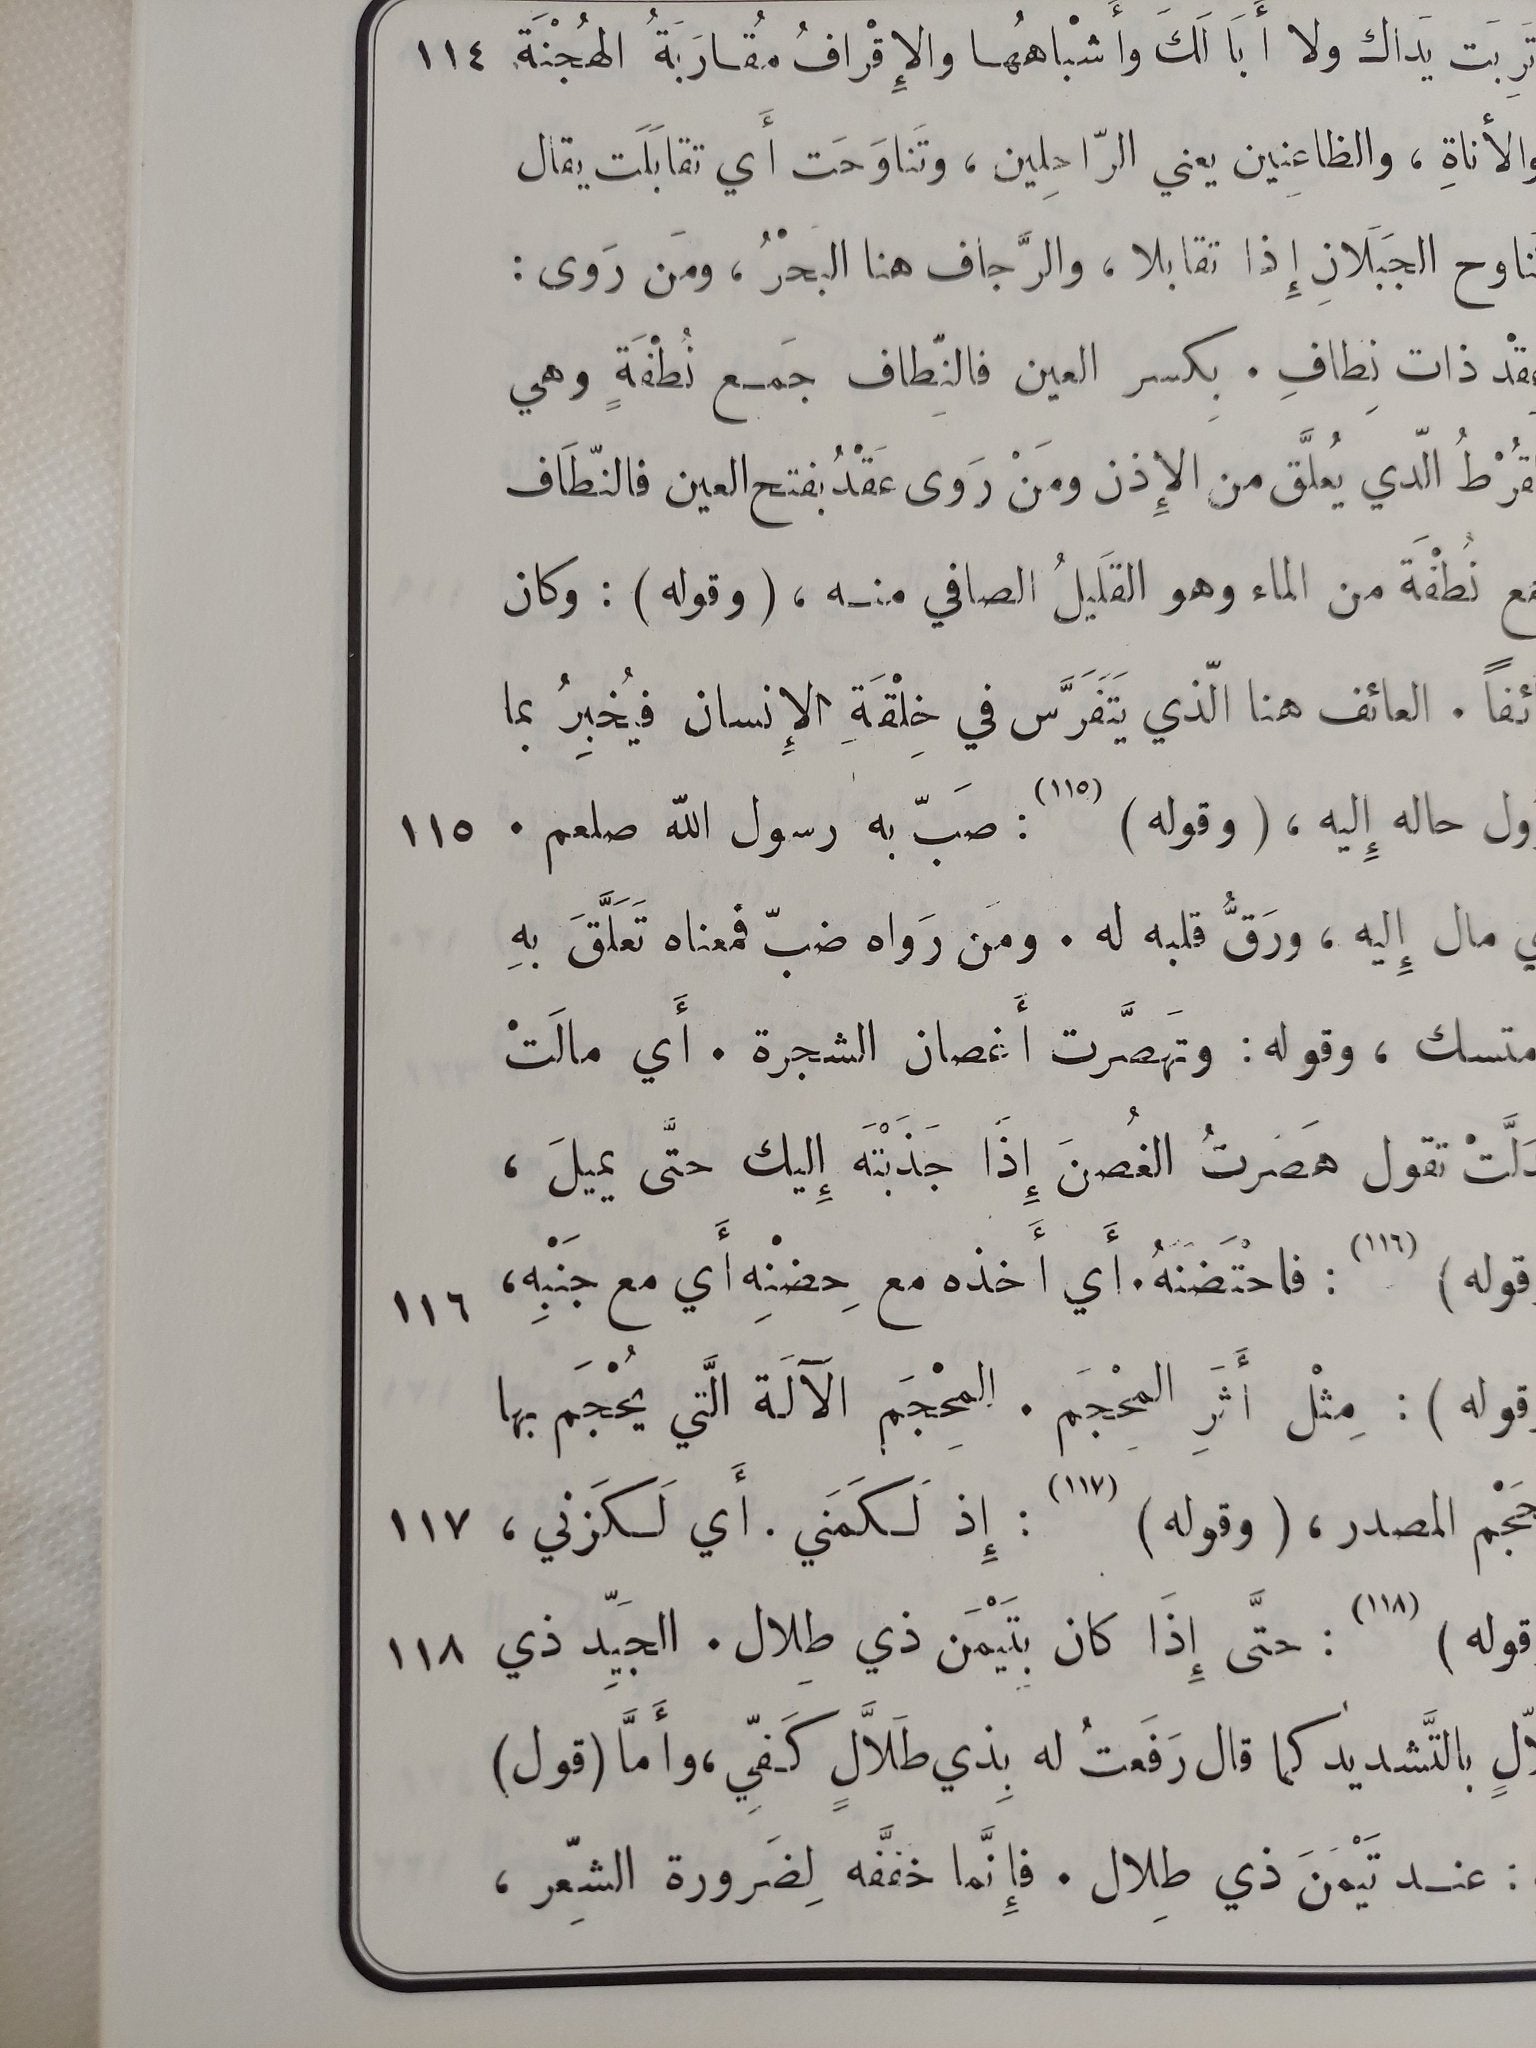 تَرِبَت يَداك ولا أَبَا لَكَ وأَشْباهُها والإِقْرافُ مُقارَبَةُ الهُجْنَة ١١٤
والأَناةِ ، والظاعِنِين يعني الرّاحِلِين ، وتَناوَحَت أَي تقابَلَت يقال
الجَبَلَانِ إِذا تقابلا ، والرَّجاف هنا البَحْرُ ، ومَن رَوى :
ذات نِطافِ . بِكسر العين فالنِّطاف جَمع نُطْفَةٍ وهي
الّذي يُعلَّق من الإِذن ومَنْ رَوى عَقْدُ بفتح العين فالنّطَاف
نُطْفَة من الماء وهو القَلَيلُ الصافي منه ، ( وقوله ) : وكان
العائف هنا الّذي يَتَفَرَّس في خِلْقَةِ الإِنسان فيُخبِرُ بما
حاله إِليه ، ( وقوله ) (١١٥) : صَبّ به رسول اللّه صلعم . ١١٥
مال إِليه ، ورَقَّ قلبه له . ومَن رَواه ضبّ فمعناه تَعَلَّقَ بهِ
وقوله : وتهَصَّرت أَغصان الشجرة . أَي مالَتْ
تقول هَصَرتُ الغُصنَ إِذَا جَذَبْتَه إِليك حتَّى يميلَ ،
وقوله ) (١١٦) : فاحْتَضَنَهُ . أَي أَخذه مع حِضنْهِ أَي مع جنَبْهِ ، ١١٦
وقوله ) : مِثْل أَثَرِ المِحْجَم . المِحْجَم الآلَة الَّتي يُحْجَم بها
المصدر ، ( وقوله ) (١١٧) : إِذ لَكَمَني . أَي لَكَزني ، ١١٧
وقوله ) (١١٨) : حتَّى إِذَا كان بِتَيْمَن ذي طِلال . الجيِّد ذي ١١٨
بالتَّشديد كما قال رَفَعتُ له بِذي طَلَالٍ كَفِّي ، وأَمَّا (قول)
: عند تَيْمَنَ ذي طِلال . فإِنَّما خفَّفه لِضَرورة الشّعِر ،